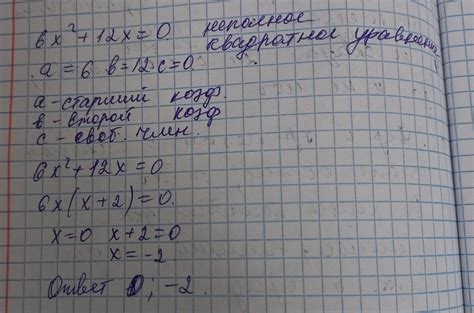 6x² + 12x = 0 неполное
квадратное уравнение
a = 6 в = 12 с = 0
а - старший коэф.
в - второй коэф
с - своб. член.
6x² + 12x = 0
6x(x + 2) = 0.
x = 0 x + 2 = 0
x = -2
Ответ 0; -2.